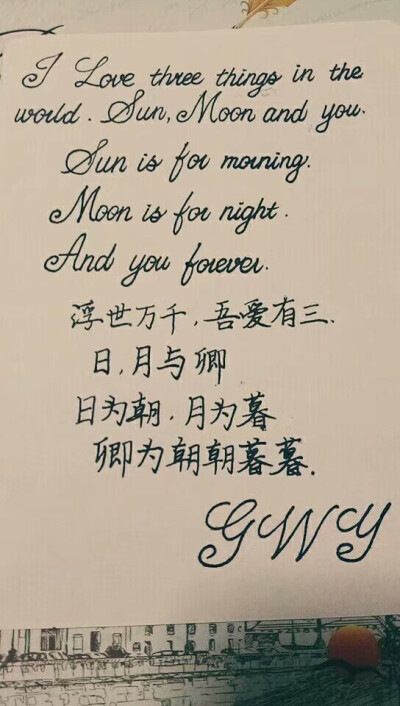 I Love three things in the
world. Sun, Moon and you.
Sun is for morning.
Moon is for night.
And you forever.
浮世万千,吾爱有三.
日,月与卿
日为朝.月为暮
卿为朝朝暮暮.
GWY